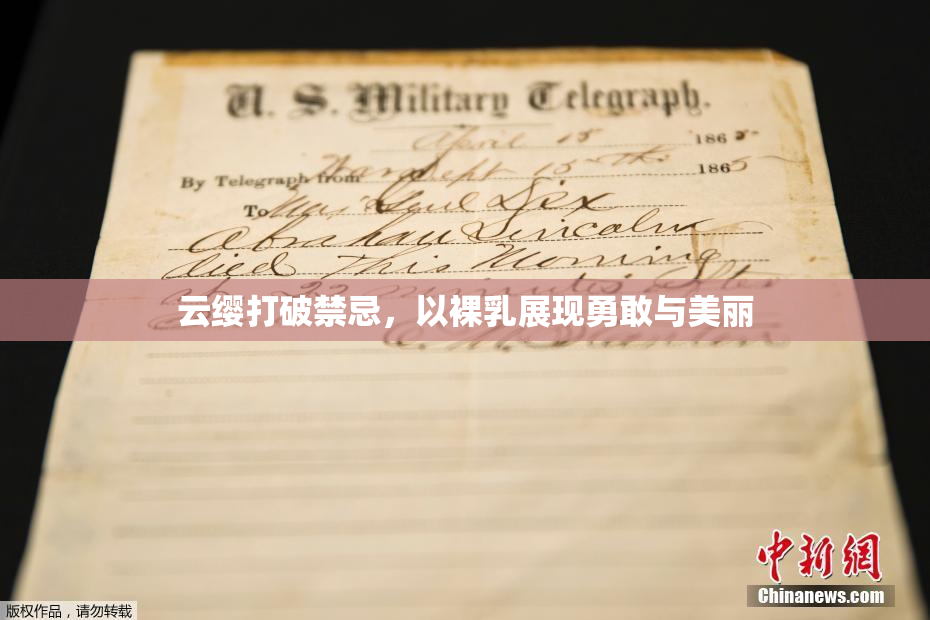 U. S. Military Telegraph.
April 15 1865
By Telegraph from War Dept 15th 1865
To Maj Genl Dix
Abraham Lincoln
died This Morning
at 22 minutes after
云缨打破禁忌，以裸乳展现勇敢与美丽
E. M. Stanton
中新网
Chinanews.com
版权作品，请勿转载